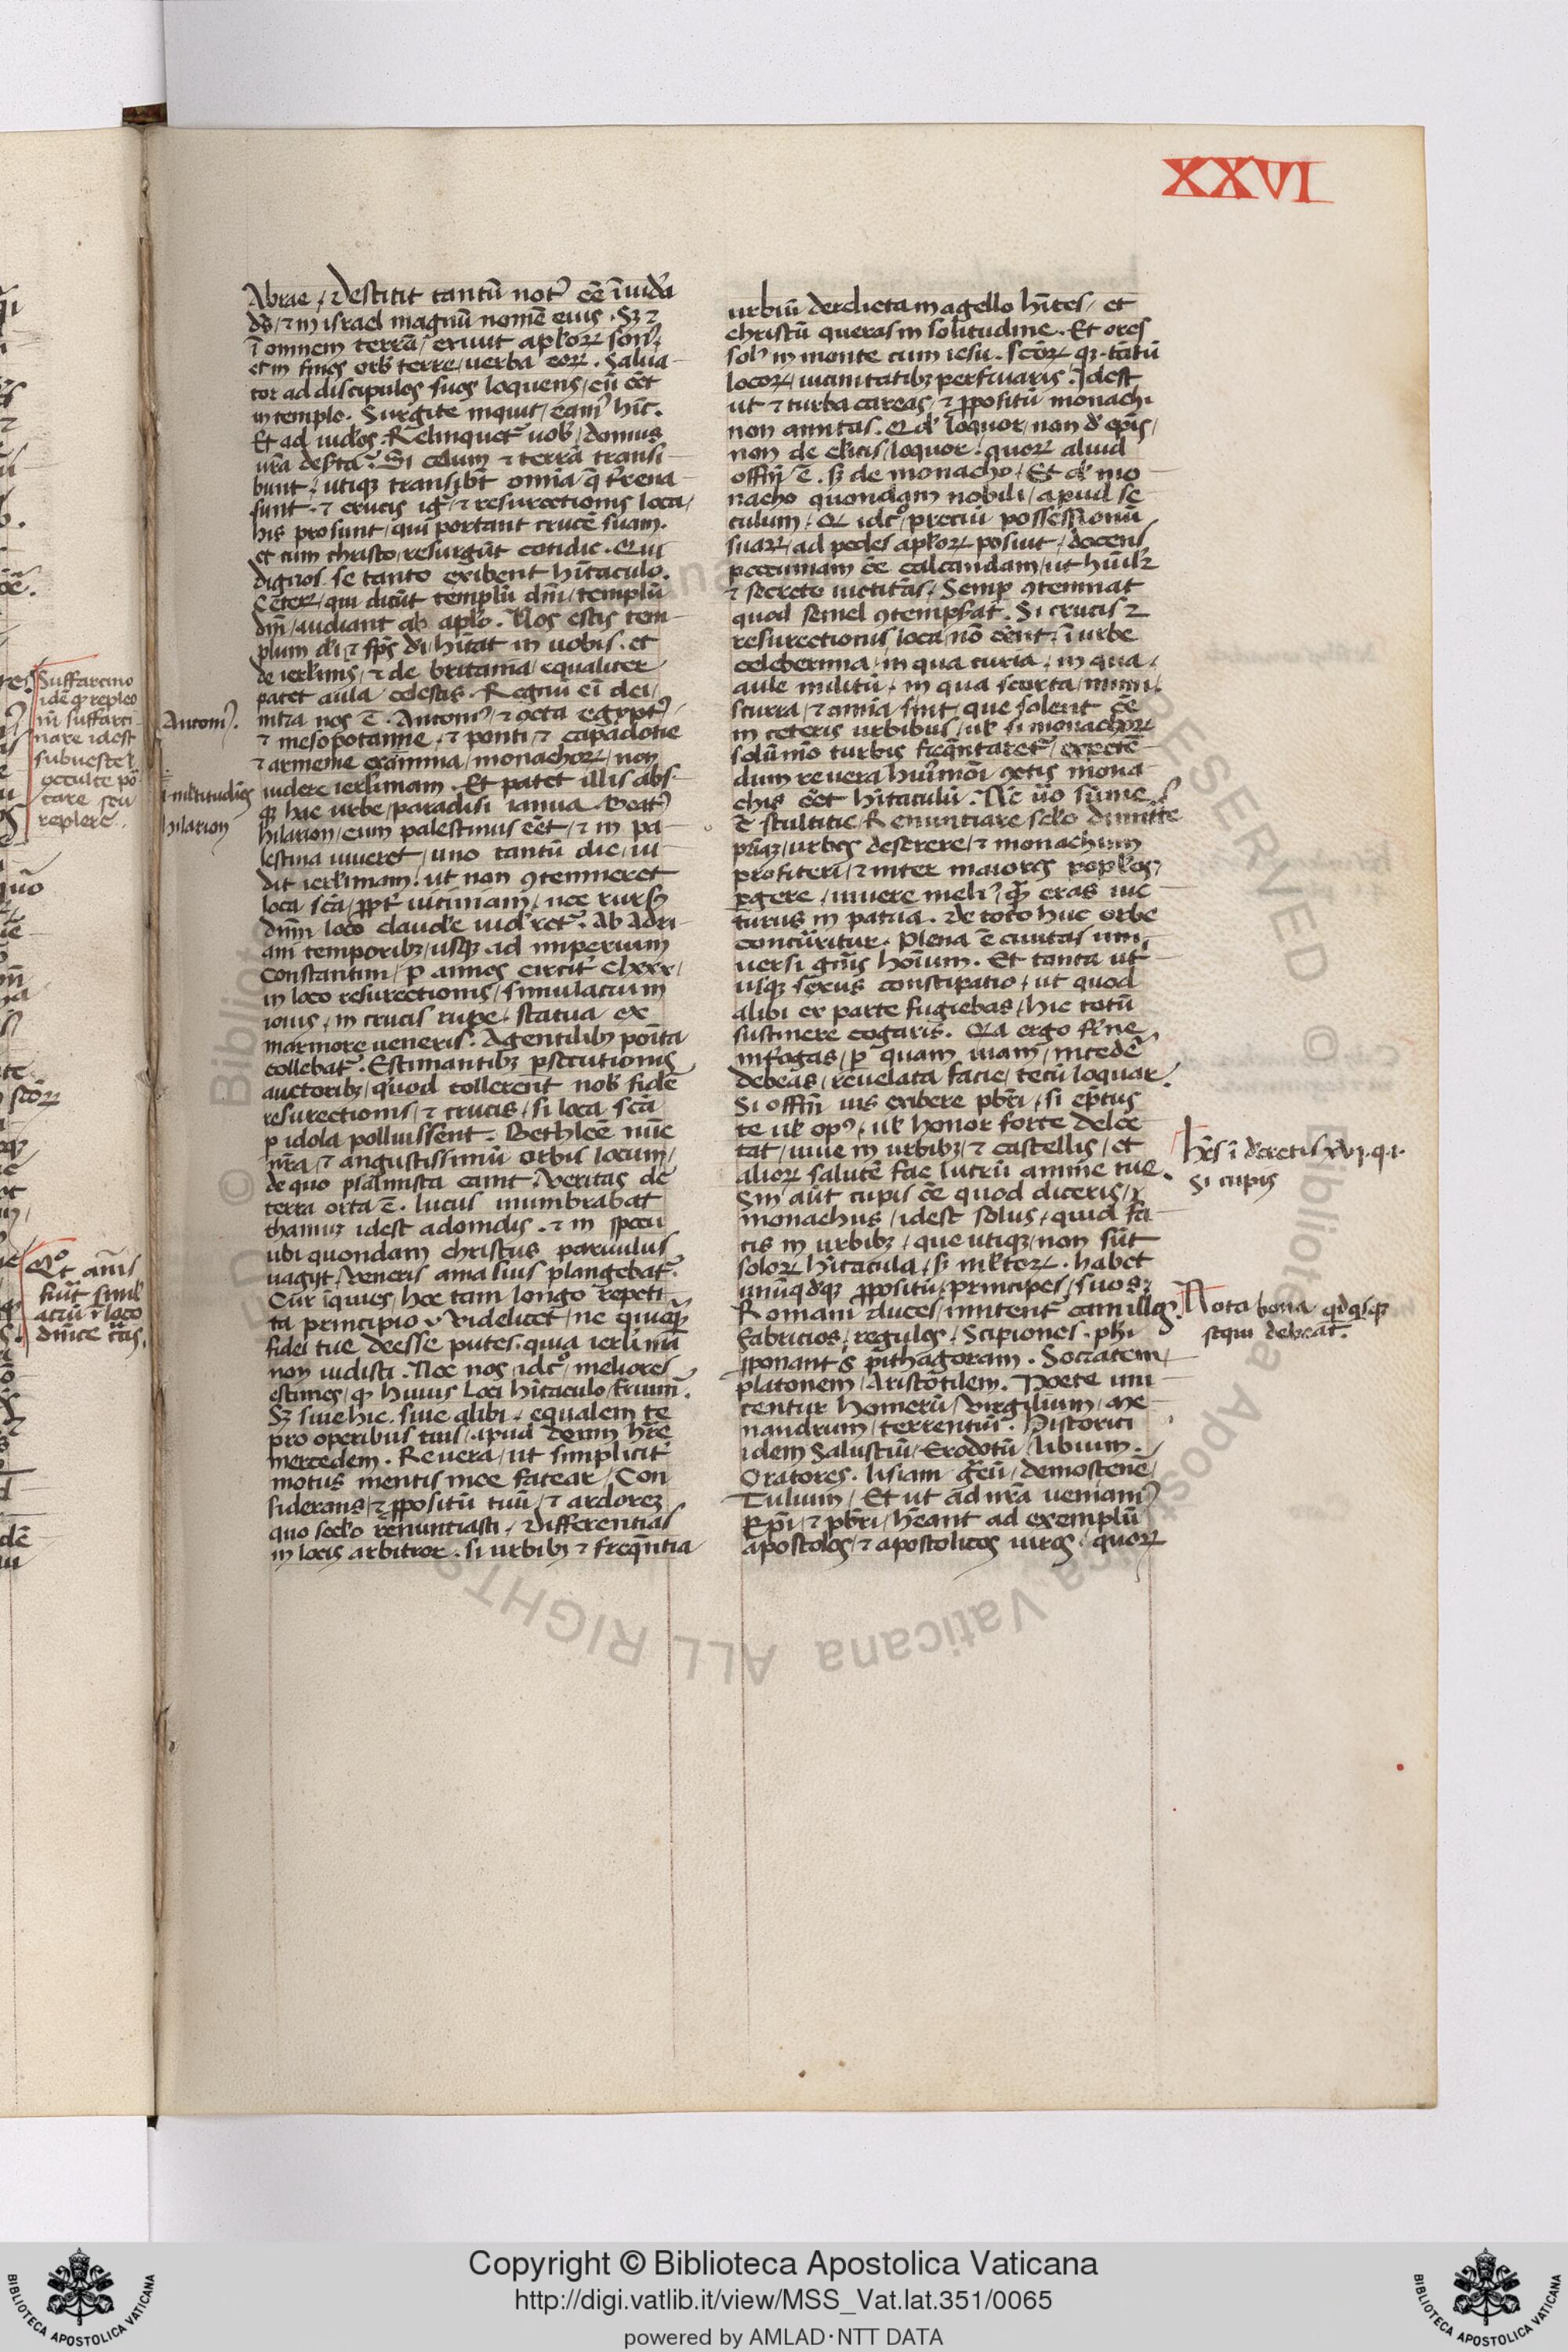 XXVI
Abrae / Destitit tantū notꝰ cē ī iuda
ds̄ / ⁊ in israel magnū nomē eius . Sꝫ ⁊
ī omnem terrā / exiuit aplorꝝ sonꝰ /
et in fines orb̄ terre / uerba eorꝝ . Salua
tor ad discipulos suos loquens / cū cēt
in templo . Surgite inquit / eamꝰ hīc .
Et ad iudeos . Relinquetᷣ uob̄ / domus
ur̄a des̄ta . Si celum ⁊ terrā transi
bunt / utiqꝫ transibt̄ omīa q̄ trena
sunt . ⁊ crucis igr̄ / ⁊ resurectionis loca /
his prosunt / qui portant crucē suam .
et cum christo / resurgūt cotidie . Qui
dignos se tanto exibent hītaculo .
Cēterꝝ / qui dicūt templū dn̄i / templū
dn̄i / audiant ab aplo . Nos estis tem
plum dei ⁊ sps̄ di hītat in uobis . et
de ierl̄imis / ⁊ de britania / equaliter
patet aula celestis . Regnū ei dei /
intra nos ē . Antoniꝰ / ⁊ ꝯcta egypti /
⁊ mesopotamie / ⁊ ponti / ⁊ capadotie
⁊ armenie examina / monachorꝝ / non
uidere ierl̄imam . Et patet illis abs
qꝫ hac urbe / paradisi ianua . Beatꝰ
hilarion / cum palestinus cēt / ⁊ in pa
lestina uiueret / uno tantū die / ui
dit ierl̄imam . ut non ꝯtemneret
loca sc̄a / ꝓpt̄ uiciniam / nec rursꝰ
dn̄m loco claudere uideretᷣ . Ab Adri
ani temporibꝫ / usqꝫ ad imperium
Constantini / p annos circit̄ clxxx /
in loco resurectionis / simulacrum
iouis / in crucis rupe / statua ex
marmore ueneris . Agentilibꝫ poīta
collebatᷣ . Estimantibꝫ psecutionis
auctoribꝫ / quod tollerent nob̄ fidē
resurectionis / ⁊ crucis / si loca sc̄a
p idola polluissent . Bethleē nūc
nr̄a / ⁊ angustissimū orbis locum /
de quo psalmista canit / Veritas de
terra orta ē . lucus inumbrabat
thamuz idest adonidis . ⁊ in specu
ubi quondam christus paruulus
uagijt / Veneris amasius plangebatᷣ .
Cur īquies / hec tam longo repeti
ta principio ? Videlicet / ne quicqꝫ
fidei tue deesse putes . quia ierl̄imā
non uidisti . Nec nos / idcº / meliores
estimes / qꝫ huius loci hītaculo / fruimꝰ .
Sꝫ siue hic . siue alibi . equalem te
pro operibus tuis / apud deum hr̄e
mercedem . Reuera / ut simplicit̄
motus mentis mee fatear / Con
siderans / ⁊ ꝓpositū tuū / ⁊ ardorez
quo seclo renuntiasti / Differentias
in locis arbitror . si urbibꝫ ⁊ freqn̄tia
urbiū derelicta in agello hītes / et
christū queras in solitudine . Et ores
solꝰ in monte cum iesu . scōrꝝ qꝫ tātū
locorꝝ / uicinitatibꝫ perfruaris . Idest
ut ⁊ turba careas / ⁊ ꝓpositū monachi
non amitas . Qd̄ loquor / non d' epis̄ /
non de cl̄icis / loquor . quorꝝ aliud
offm̄ ē . sꝫ de monacho . Et d' mo
nacho quondam nobili / apud se
culum . Qui idcº / preciū possessionū
suarꝝ / ad pedes aplorꝝ posuit / docens
peccuniam cē calcandam / ut hūil'r
⁊ secrete uictitās . Semp ꝯtemnat
quod semel ꝯtempsat . Si crucis ⁊
resurectionis loca / nō cēnt ī urbe
celeberima / in qua curia / in qua
aule militū / in qua scorta / mimi /
scurra / ⁊ omīa sint / que solent cē
in ceteris urbibus / ul' si monachorꝝ
solūmō turbis freqn̄taretᷣ / expetē
dum reuera hui'mōi ꝯctis mona
chis cēt hītaculū . Nc̄ ūo sūme
ē stultitie / Renuntiare seclo dimitte
patriā / urbes deserere / ⁊ monachum
profiteri / ⁊ inter maiores poplos /
pgere / uiuere meliꝰ / qꝫ eras uic
turus in patria . De toto huc orbe
concurritur . Plena ē ciuitas uni
uersi gn̄is hoīum . Et tanta ut
usqꝫ sexus constipatio / ut quod
alibi ex parte fugiebas / hic totū
sustinere cogaris . Qa ergo fr̄ne
interogas / p quam uiam / incedē
debeas / reuelata facie / tecū loquar .
Si offm̄ uis exibere pbr̄i / si ep̄tus
te ul' opꝰ / ul' honor forte delec
tat / uiue in urbibꝫ / ⁊ castellis / et
aliorꝝ salutē fac lucrū anime tue .
Sin aūt cupis cē quod diceris /
monachus / idest solus / quid fa
cis in urbibꝫ / que utiqꝫ / non sūt
solorꝝ hītacula / sꝫ ml'torꝝ . habet
unūqdqꝫ ꝓpositū / principes / suos :
Romani duces / imitentᷣ camillos
fabricios / regulos / Scipiones . phi
ꝓponant s pithagoram . Socratem /
platonem / Aristotilem . Poete imi
tentur homerū / Virgilium / me
nandrum / terrentiū . Historici
idem Salustiū / Erodotū / libium .
Oratores . lisiam gr̄cū / demostenē /
Tulium / Et ut ad nr̄a ueniamꝰ
Epi̅ / ⁊ pbr̄i / hēant ad exemplū
apostolos / ⁊ apostolicos uiros / quorꝝ
Suffarcino
idē qꝫ repleo
īn suffarci
nare idest
subueste ul'
occulte por
tare seu
replere .
Qt̄ annis
fuit simul
acrū ī loco
dn̄ice
Antoniꝰ .
ml'titudies
hilarion
hēs ī decretis xvj . q . i .
Si cupis
Nota bona qd qsqꝫ
sequi debeat .
Copyright © Biblioteca Apostolica Vaticana
http://digi.vatlib.it/view/MSS_Vat.lat.351/0065
powered by AMLAD·NTT DATA
BIBLIOTECA APOSTOLICA VATICANA
BIBLIOTECA APOSTOLICA VATICANA